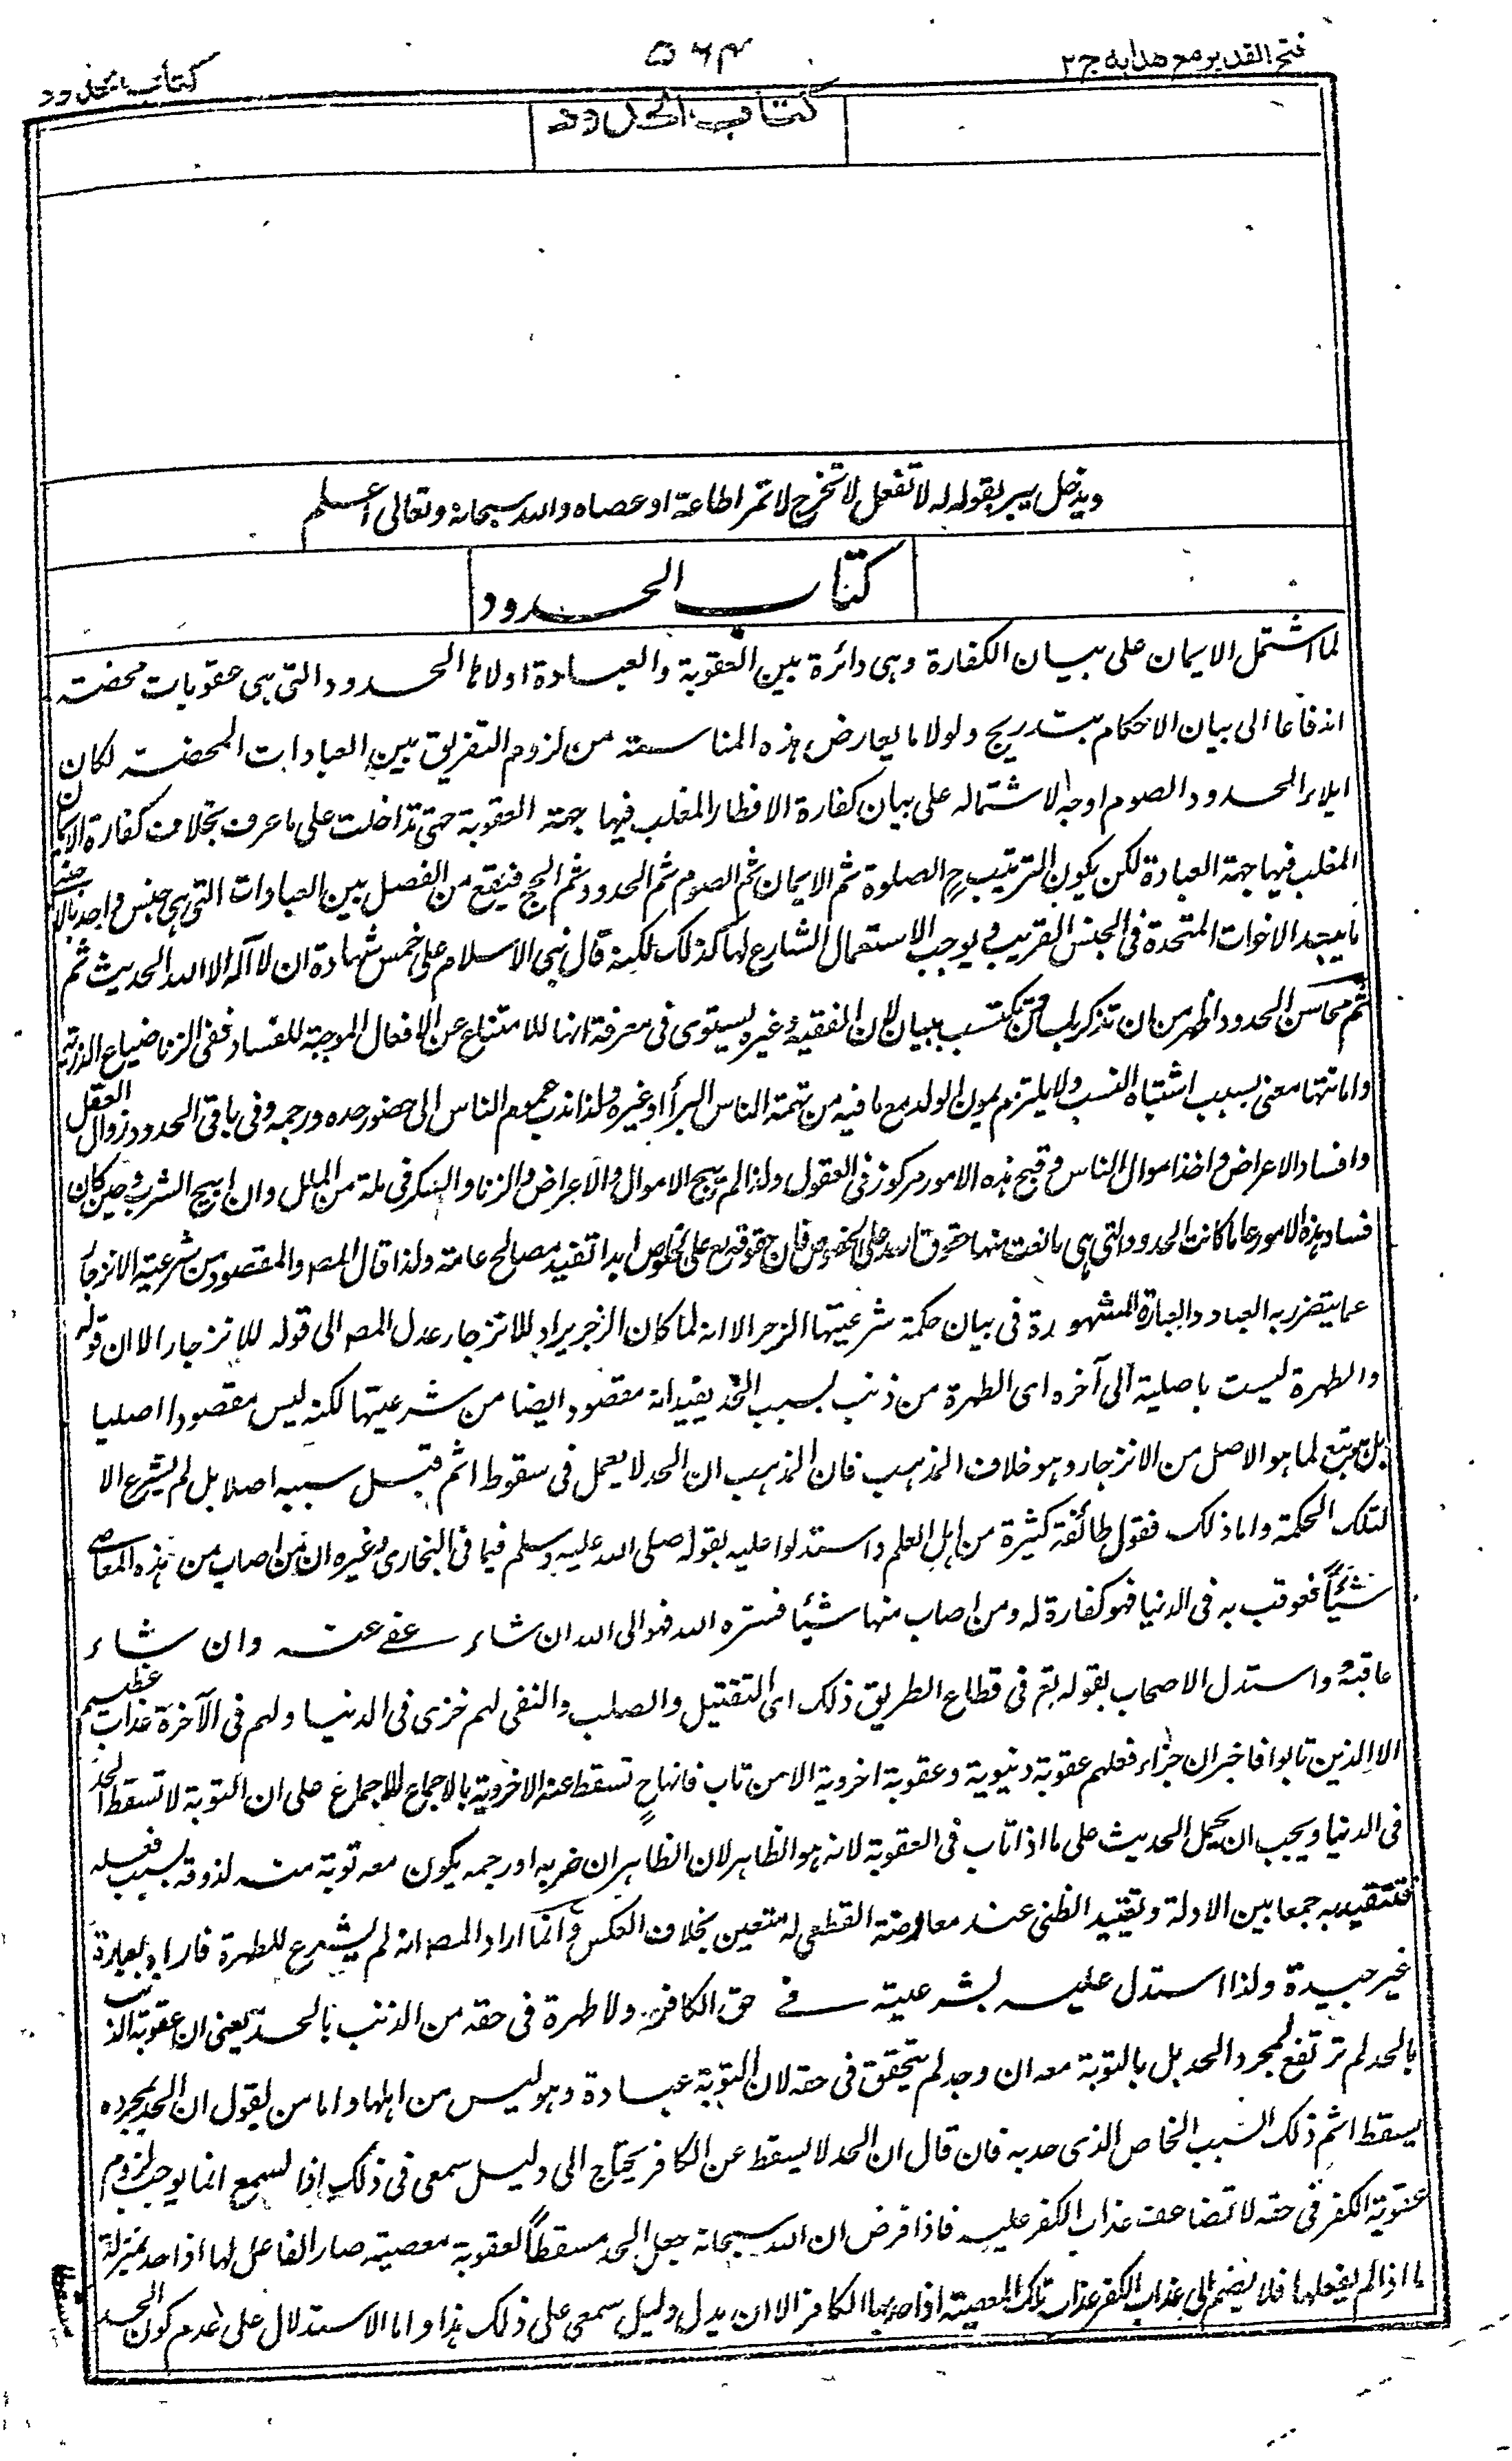 فتح القدير مع هدايه ج ٢
٥٦٣
كتاب الحدود
كتاب الحدود
ويدخل يبر بقوله له لا تفعل لا تخرج لا تمر اطاعة او عصاه والله سبحانه وتعالى اعلم
كتاب الحدود
لما اشتمل الايمان على بيان الكفارة وهى دائرة بين العقوبة والعبادة اولاها الحدود التى هى عقوبات محضة
اندفاعا الى بيان الاحكام بتدريج ولولا ما يعارض هذه المناسبة من لزوم التفريق بين العبادات المحضة لكان
ايلاء الحدود الصوم اوجه لاشتماله على بيان كفارة الافطار المغلب فيها جهة العقوبة حتى تداخلت على ما عرف بخلاف كفارة الايمان
المغلب فيها جهة العبادة لكن يكون الترتيب ح الصلوة ثم الايمان ثم الصوم ثم الحدود ثم الحج فيقع من الفصل بين العبادات التى هى جنس واحد بالاجنبى
ما يبعد الاخوات المتحدة فى الجنس القريب ويوجب الاستعمال الشارع لها كذلك لكنه قال بنى الاسلام على خمس شهادة ان لا آله الا الله الحديث ثم
ثم محاسن الحدود اظهر من ان تذكر بلسان وتكتسب ببيان لان الفقيه وغيره يستوى فى معرفة انها للامتناع عن الافعال الموجبة للفساد ففى الزنا ضياع الذرية
واماتتها معنى بسبب اشتباه النسب ولا يلتزم يمون الولد مع ما فيه من تهمة الناس البرأ او غيره ولذا ندب عموم الناس الى حضور حده ورجمه وفى باقى الحدود زوال العقل
وافساد الاعراض واخذ اموال الناس وقبح هذه الامور مركوز فى العقول ولذا لم تبح الاموال والاعراض والزنا والسكر فى ملة من الملل وان ابيح الشرب وحين كان
فساد هذه الامور عاما كانت الحدود التى هى مانعة منها حقوق الله على الخصوص فان حقوقه تع على الخلوص ابدا تفيد مصالح عامة ولذا قال المص والمقصود من شرعيته الانزجار
عما يتضرر به العباد والعبارة المشهورة فى بيان حكمة شرعيتها الزجر الا انه لما كان الزجر يراد للانزجار عدل المص الى قوله للانزجار الا ان قوله
والطهرة ليست باصلية الى آخره اى الطهرة من ذنب بسبب الحد يفيد انه مقصود ايضا من شرعيتها لكنه ليس مقصودا اصليا
بل هو تبع لما هو الاصل من الانزجار وهو خلاف المذهب فان المذهب ان الحد لا يعمل فى سقوط اثم قبل سببه اصلا بل لم يشرع الا
لتلك الحكمة واما ذلك فقول طائفة كثيرة من اهل العلم واستدلوا عليه بقوله صلى الله عليه وسلم فيما فى البخارى وغيره ان من اصاب من هذه المعاصى
شيئا فعوقب به فى الدنيا فهو كفارة له ومن اصاب منها شيئا فستره الله فهو الى الله ان شاء عفى عنه وان شاء
عاقبه واستدل الاصحاب بقوله تع فى قطاع الطريق ذلك اى التقتيل والصلب والنفى لهم خزى فى الدنيا ولهم فى الآخرة عذاب عظيم
الا الذين تابوا فاخبر ان جزاء فعلهم عقوبة دنيوية وعقوبة اخروية الا من تاب فانها ح تسقط عنه الاخروية بالاجماع للاجماع على ان التوبة لا تسقط الحد
فى الدنيا ويجب ان يحمل الحديث على ما اذا تاب فى العقوبة لانه هو الظاهر لان الظاهر ان ضربه او رجمه يكون معه توبة منه لذوقه بسبب فعله
فتقييده جمعا بين الادلة وتقييد الظنى عند معارضة القطعى له متعين بخلاف العكس وانما اراد المص انه لم يشرع للطهرة فاراد بعبارة
غير جيدة ولذا استدل عليه بشرعيته فى حق الكافر ولا طهرة فى حقه من الذنب بالحد يعنى ان عقوبة الذنب
بالحد لم ترتفع لمجرد الحد بل بالتوبة معه ان وجد لم يتحقق فى حقه لان التوبة عبادة وهو ليس من اهلها واما من يقول ان الحد بمجرده
يسقط اثم ذلك السبب الخاص الذى حد به فان قال ان الحد لا يسقط عن الكافر يحتاج الى دليل سمعى فى ذلك اذا لسمع انما يوجب لزوم
عقوبة الكفر فى حقه لا تضاعف عذاب الكفر عليه فاذا فرض ان الله سبحانه جعل الحد مسقطا لعقوبة معصية صار الفاعل لها اذا حد بمنزلة
ما اذا لم يفعلها فلا يضم الى عذاب الكفر عذاب تلك المعصية اذا حد بها الكافر الا ان يدل دليل سمعى على ذلك هذا واما الاستدلال على عدم كون الحد